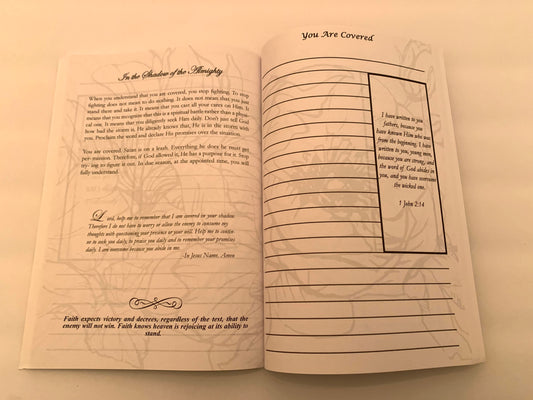 In the Shadow of the Almighty
When you understand that you are covered, you stop fighting. To stop
fighting does not mean to do nothing. It does not mean that you just
stand there and take it. It means that you cast all your cares on Him. It
means that you recognize that this is a spiritual battle rather than a physi-
cal one. It means that you diligently seek Him daily. Don't just tell God
how bad the storm is, He already knows that, He is in the storm with
you. Proclaim the word and declare His promises over the situation.
You are covered. Satan is on a leash. Everything he does he must get
per-mission. Therefore, if God allowed it, He has a purpose for it. Stop
try-ing to figure it out. In due season, at the appointed time, you will
fully understand.
Lord, help me to remember that I am covered in your shadow.
Therefore I do not have to worry or allow the enemy to consume my
thoughts with questioning your presence or your will. Help me to contin-
ue to seek you daily, to praise you daily and to remember your promises
daily. I am overcome because you abide in me.
-In Jesus Name, Amen
Faith expects victory and decrees, regardless of the test, that the
enemy will not win. Faith knows heaven is rejoicing at its ability to
stand.
You Are Covered
I have written to you
fathers, because you
have known Him who was
from the beginning. I have
written to you, young men,
because you are strong, and
the word of God abides in
you, and you have overcome
the wicked one.
1 John 2:14